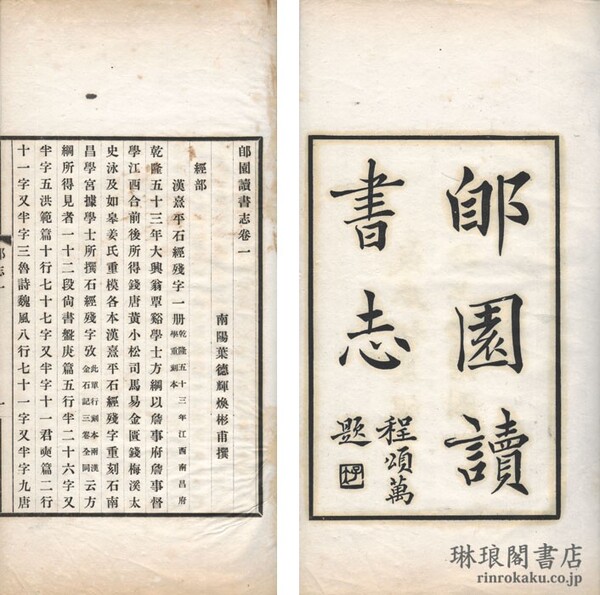 郋園讀
書志
程頌萬
題
郋園讀書志卷一
南陽葉德輝煥彬甫撰
經部
漢熹平石經殘字一册乾隆五十三年江西南昌府學重刻本
乾隆五十三年大興翁覃谿學士方綱以詹事府詹事督
學江西合前後所得錢唐黃小松司馬易金匱錢梅溪太
史泳及如皋姜氏重模各本漢熹平石經殘字重刻石南
昌學宮據學士所撰石經殘字攷此單行刻本兩漢金石記三卷全同云方
綱所得見者一十二段尙書盤庚篇五行半二十六字又
半字五洪範篇十行七十七字又半字十一君奭篇二行
十一字又半字三魯詩魏風八行七十一字又半字九唐
琳琅閣書店
rinrokaku.co.jp